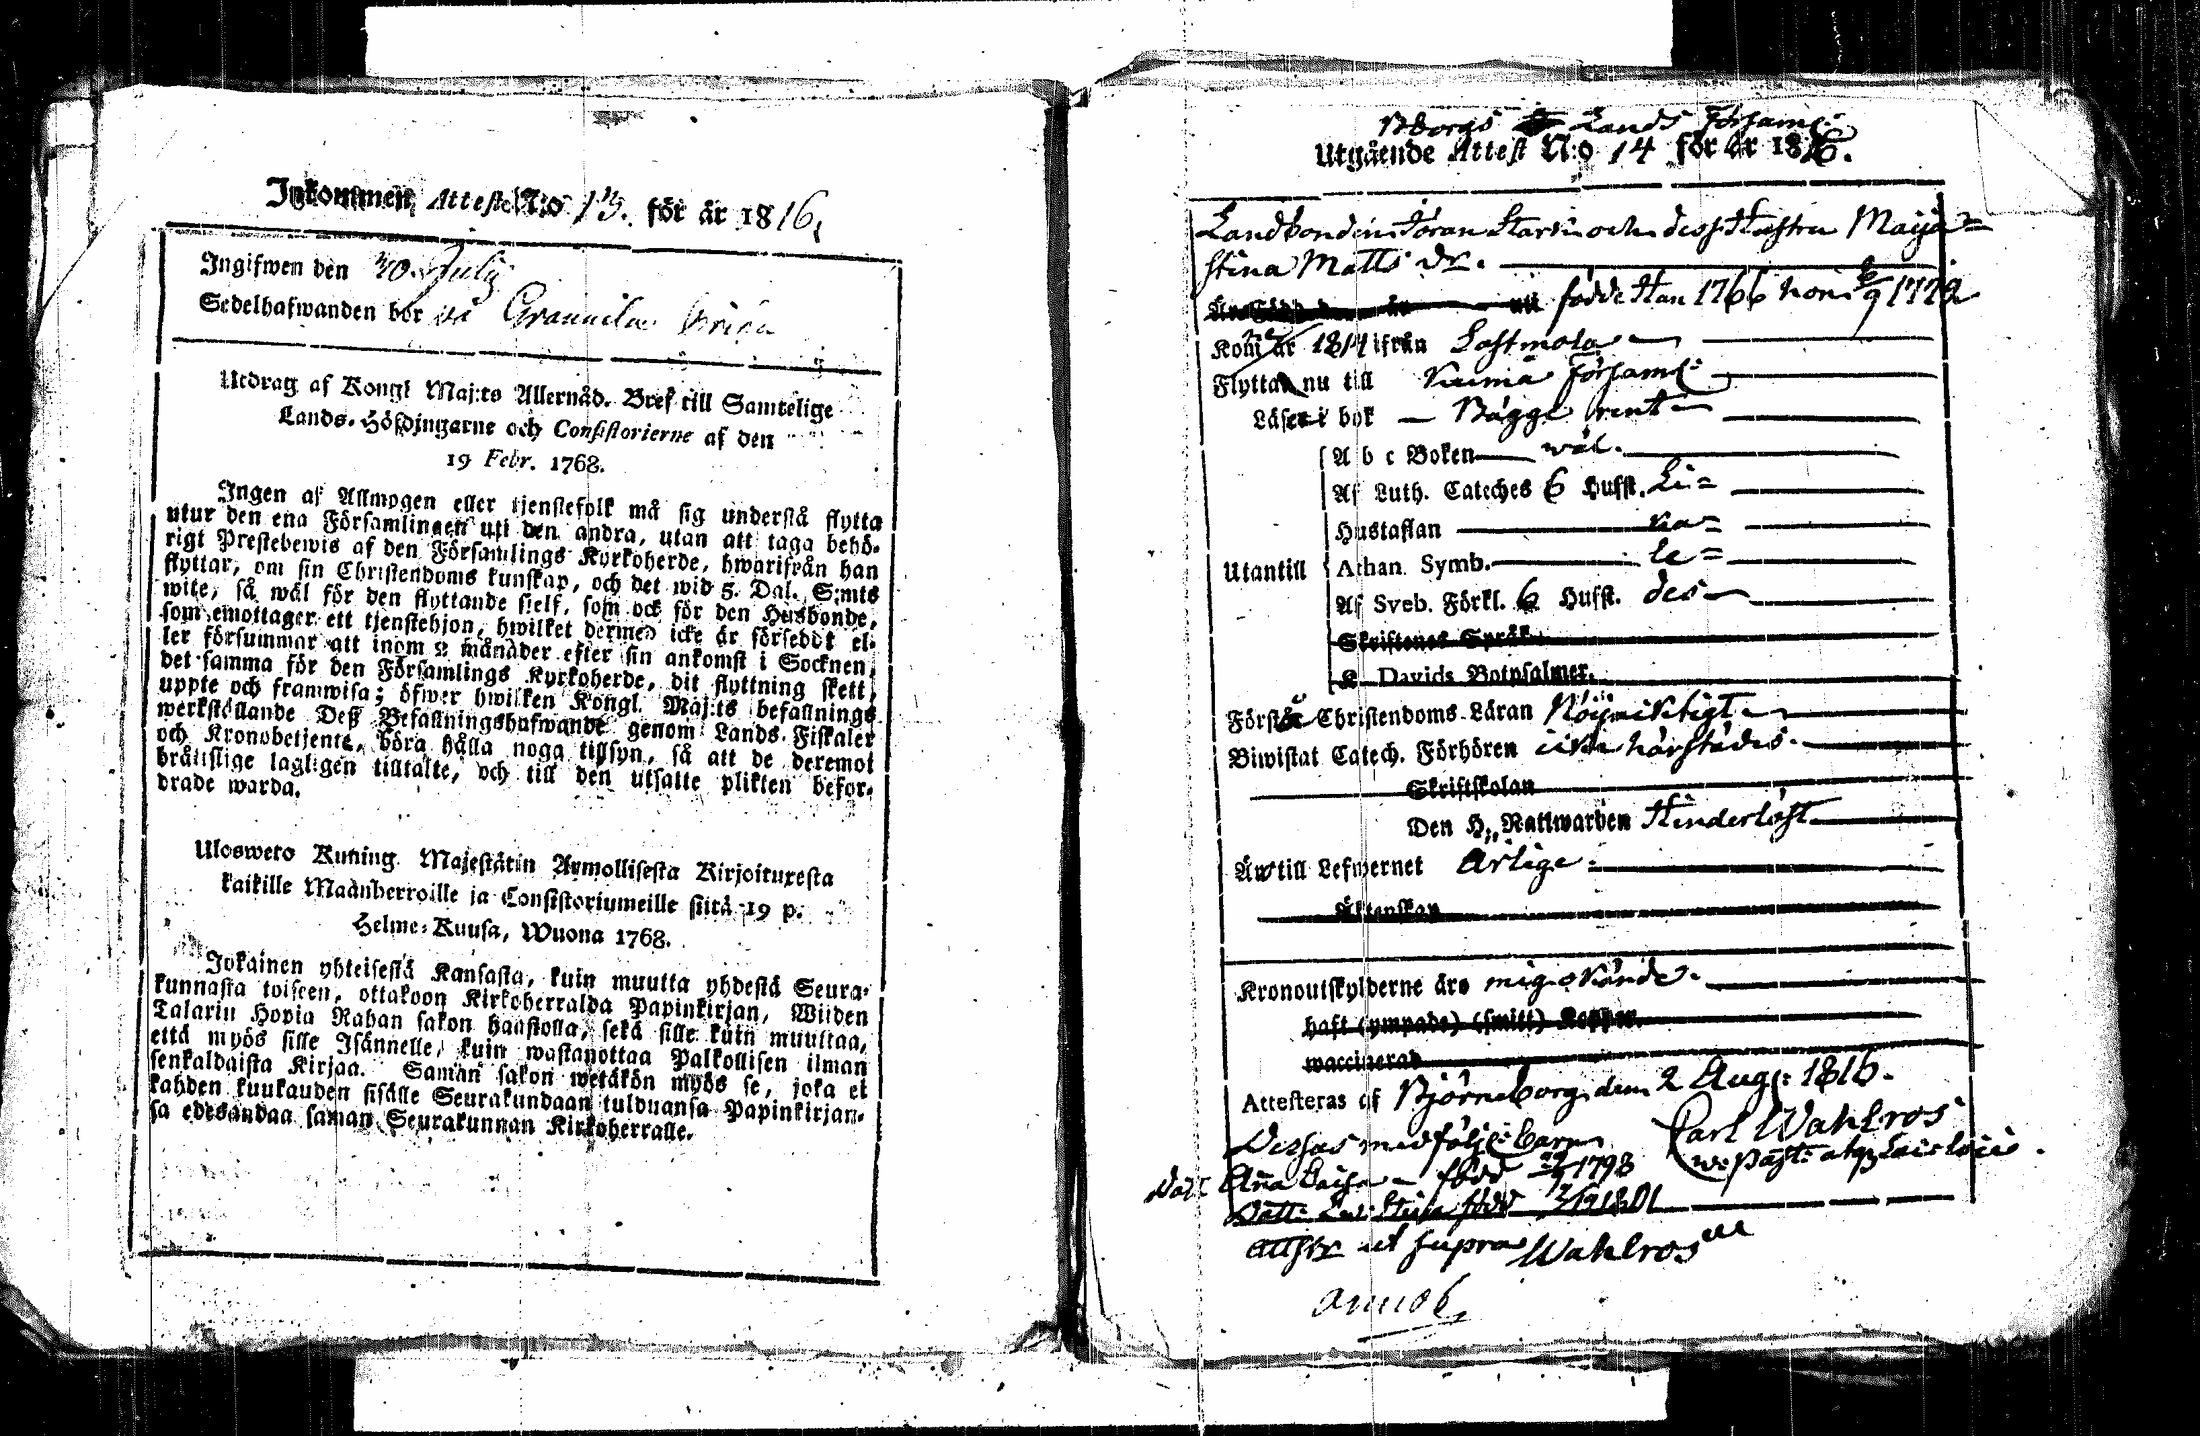 Inkommen Attest N:o 13. för år 1816.
Ingifwen den 30. July
Sedelhafwanden bor på
Utdrag af Kongl Maj:ts Allernåd. Bref till Samtelige
Lands-Höfdingarne och Consistorierne af den
19 Febr. 1768.
Ingen af Allmogen eller tjenstefolk må sig understå flytta
utur den ena Församlingen uti den andra, utan att taga behö-
rigt Prestebewis af den Församlings Kyrkoherde, hwarifrån han
flyttar, om sin Christendoms kunskap, och det wid 5. Dal. S:mts
wite, så wäl för den flyttande sielf, som ock för den Husbonde,
som emottager ett tjenstehjon, hwilket dermed icke är försedt el-
ler försummar att inom 2 månader efter sin ankomst i Socknen,
det samma för den Församlings Kyrkoherde, dit flyttning skett,
uppte och framwisa; öfwer hwilken Kongl. Maj:ts befallnings
werkställande Deß Befallningshafwande genom Lands-Fiskaler
och Kronobetjente, böra hålla noga tillsyn, så att de deremot
bråttslige lagligen tilltalte, och till den utsatte plikten befor-
drade warda.
Ulosweto Kuning. Majestätin Armollisesta Kirjoituxesta
kaikille Maanherroille ja Consistoriumeille siitä 19 p.
Helme-Kuusa, Wuona 1768.
Jokainen yhteisestä Kansasta, kuin muutta yhdestä Seura-
kunnasta toiseen, ottakoon Kirkoherralda Papinkirjan, Wiiden
Talarin Hopia Rahan sakon haastolla, sekä sille kuin muuttaa,
että myös sille Isännelle, kuin wastanottaa Palkollisen ilman
senkaldaista Kirjaa. Saman sakon wetäkön myös se, joka ei
kahden kuukauden sisälle Seurakundaan tulduansa Papinkirjan-
sa edesandaa saman Seurakunnan Kirkoherralle.
Bborgs Lands Församl:
Utgående Attest N:o 14 för år 1816.
Landbonden Jöran Stark och dess Hustru Maija
Stina Matts dr.
födde Han 1766 hon 1772
Kom år 1814 ifrån Lastmola
Flyttar nu till Församl:
Läser i bok — Bägge rent
A b c Boken — wäl.
Af Luth. Cateches 6 Hufst. Li=
Hustaflan ka=
Utantill
Athan. Symb. le=
Af Sveb. Förkl. 6 Hufst. des
Skriftenes Språk
K. Davids Botpsalmer.
Förstå Christendoms-Läran Nöijaktigt
Biwistat Catech. Förhören härstädes.
Skriftskolan
Den H. Nattwarden Hinderlöst
Äro till Lefwernet Ärlige
Äktenskap
Kronoutskylderne äro mig okände.
haft (ympade) (smitt) Koppor.
waccinerad
Attesteras af Björneborg den 2 Aug: 1816.
Carl Wahlros
Dessas medfölj: barn
Dott: Anna Caisa — född 1798
Dott: Stina född 1801
ut supra Wahlros